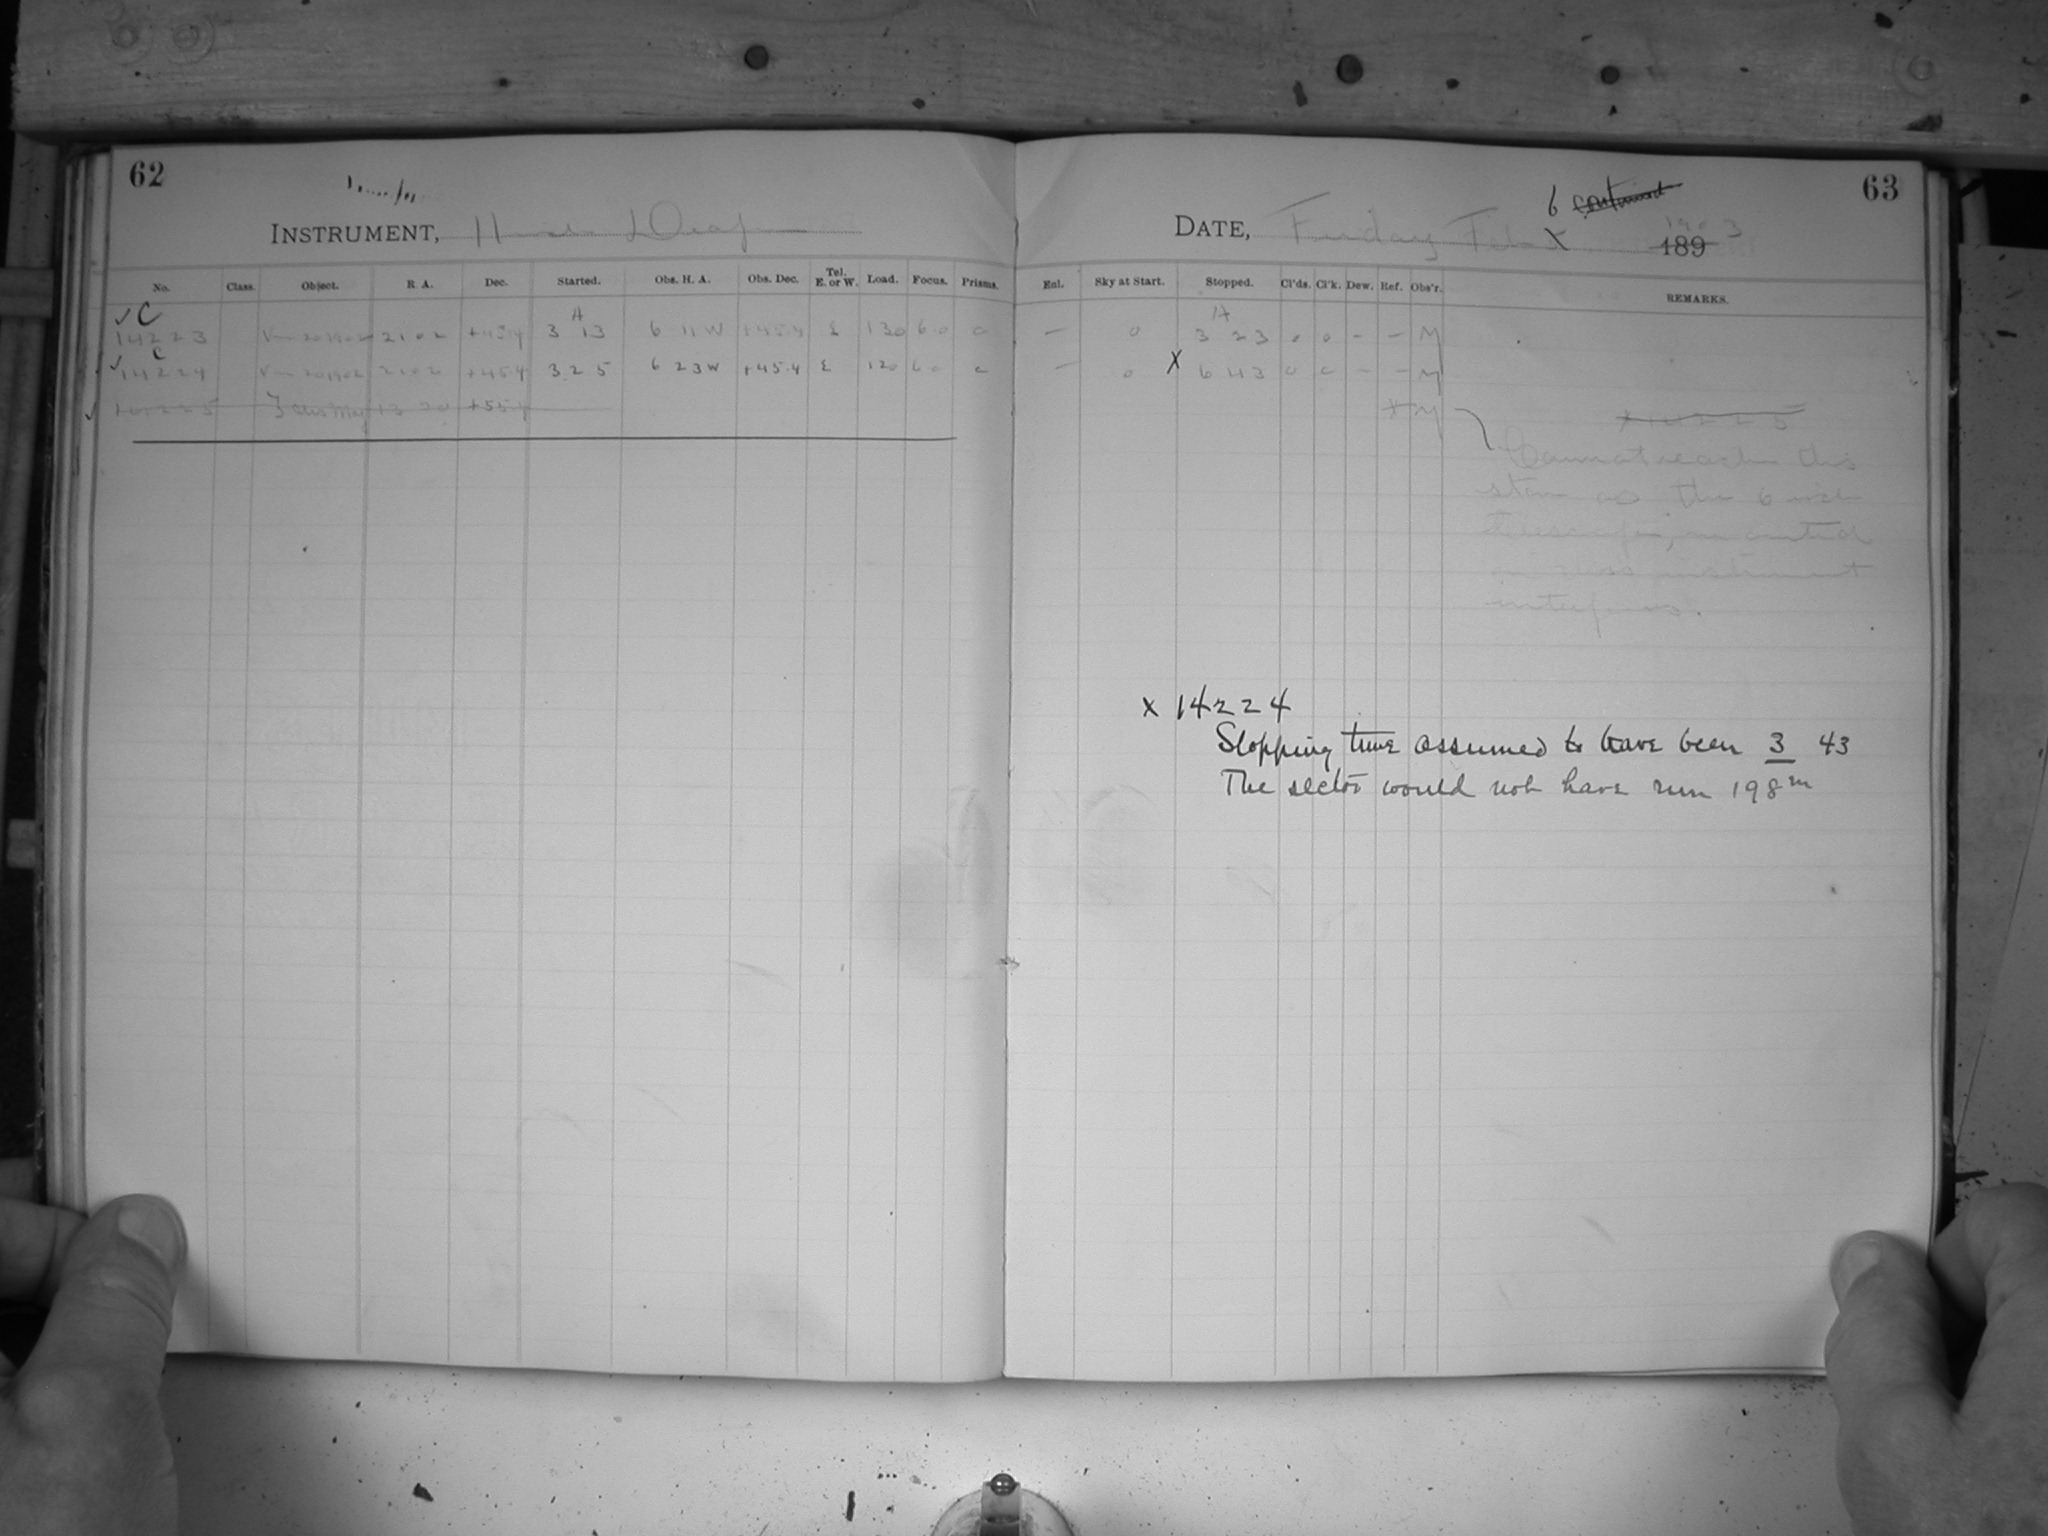 62
INSTRUMENT,
No. Class. Object. R. A. Dec. Started. Obs. H. A. Obs. Dec. Tel. E. or W. Load. Focus. Prisms.
✓ C A
14223 21 02 +45.4 3 13 6 11 W +45.4 E 130 6.0 0
✓ C
14224 21 02 +45.4 3 25 6 23 W +45.4 E 120 6.0 0
✓ 14225 13 20 +55.4
63
6 continued
DATE, Friday Feb 1903
189
Enl. Sky at Start. Stopped. Cl'ds. Cl'k. Dew. Ref. Obs'r. REMARKS.
A
— 0 3 23 0 0 – – M
— 0 X 6 43 0 0 – – M
x M x 14225
Cannot reach this
star as the 6 inch
telescope, mounted
on this instrument
interferes.
x 14224
Stopping time assumed to have been 3 43
The sector would not have run 198m